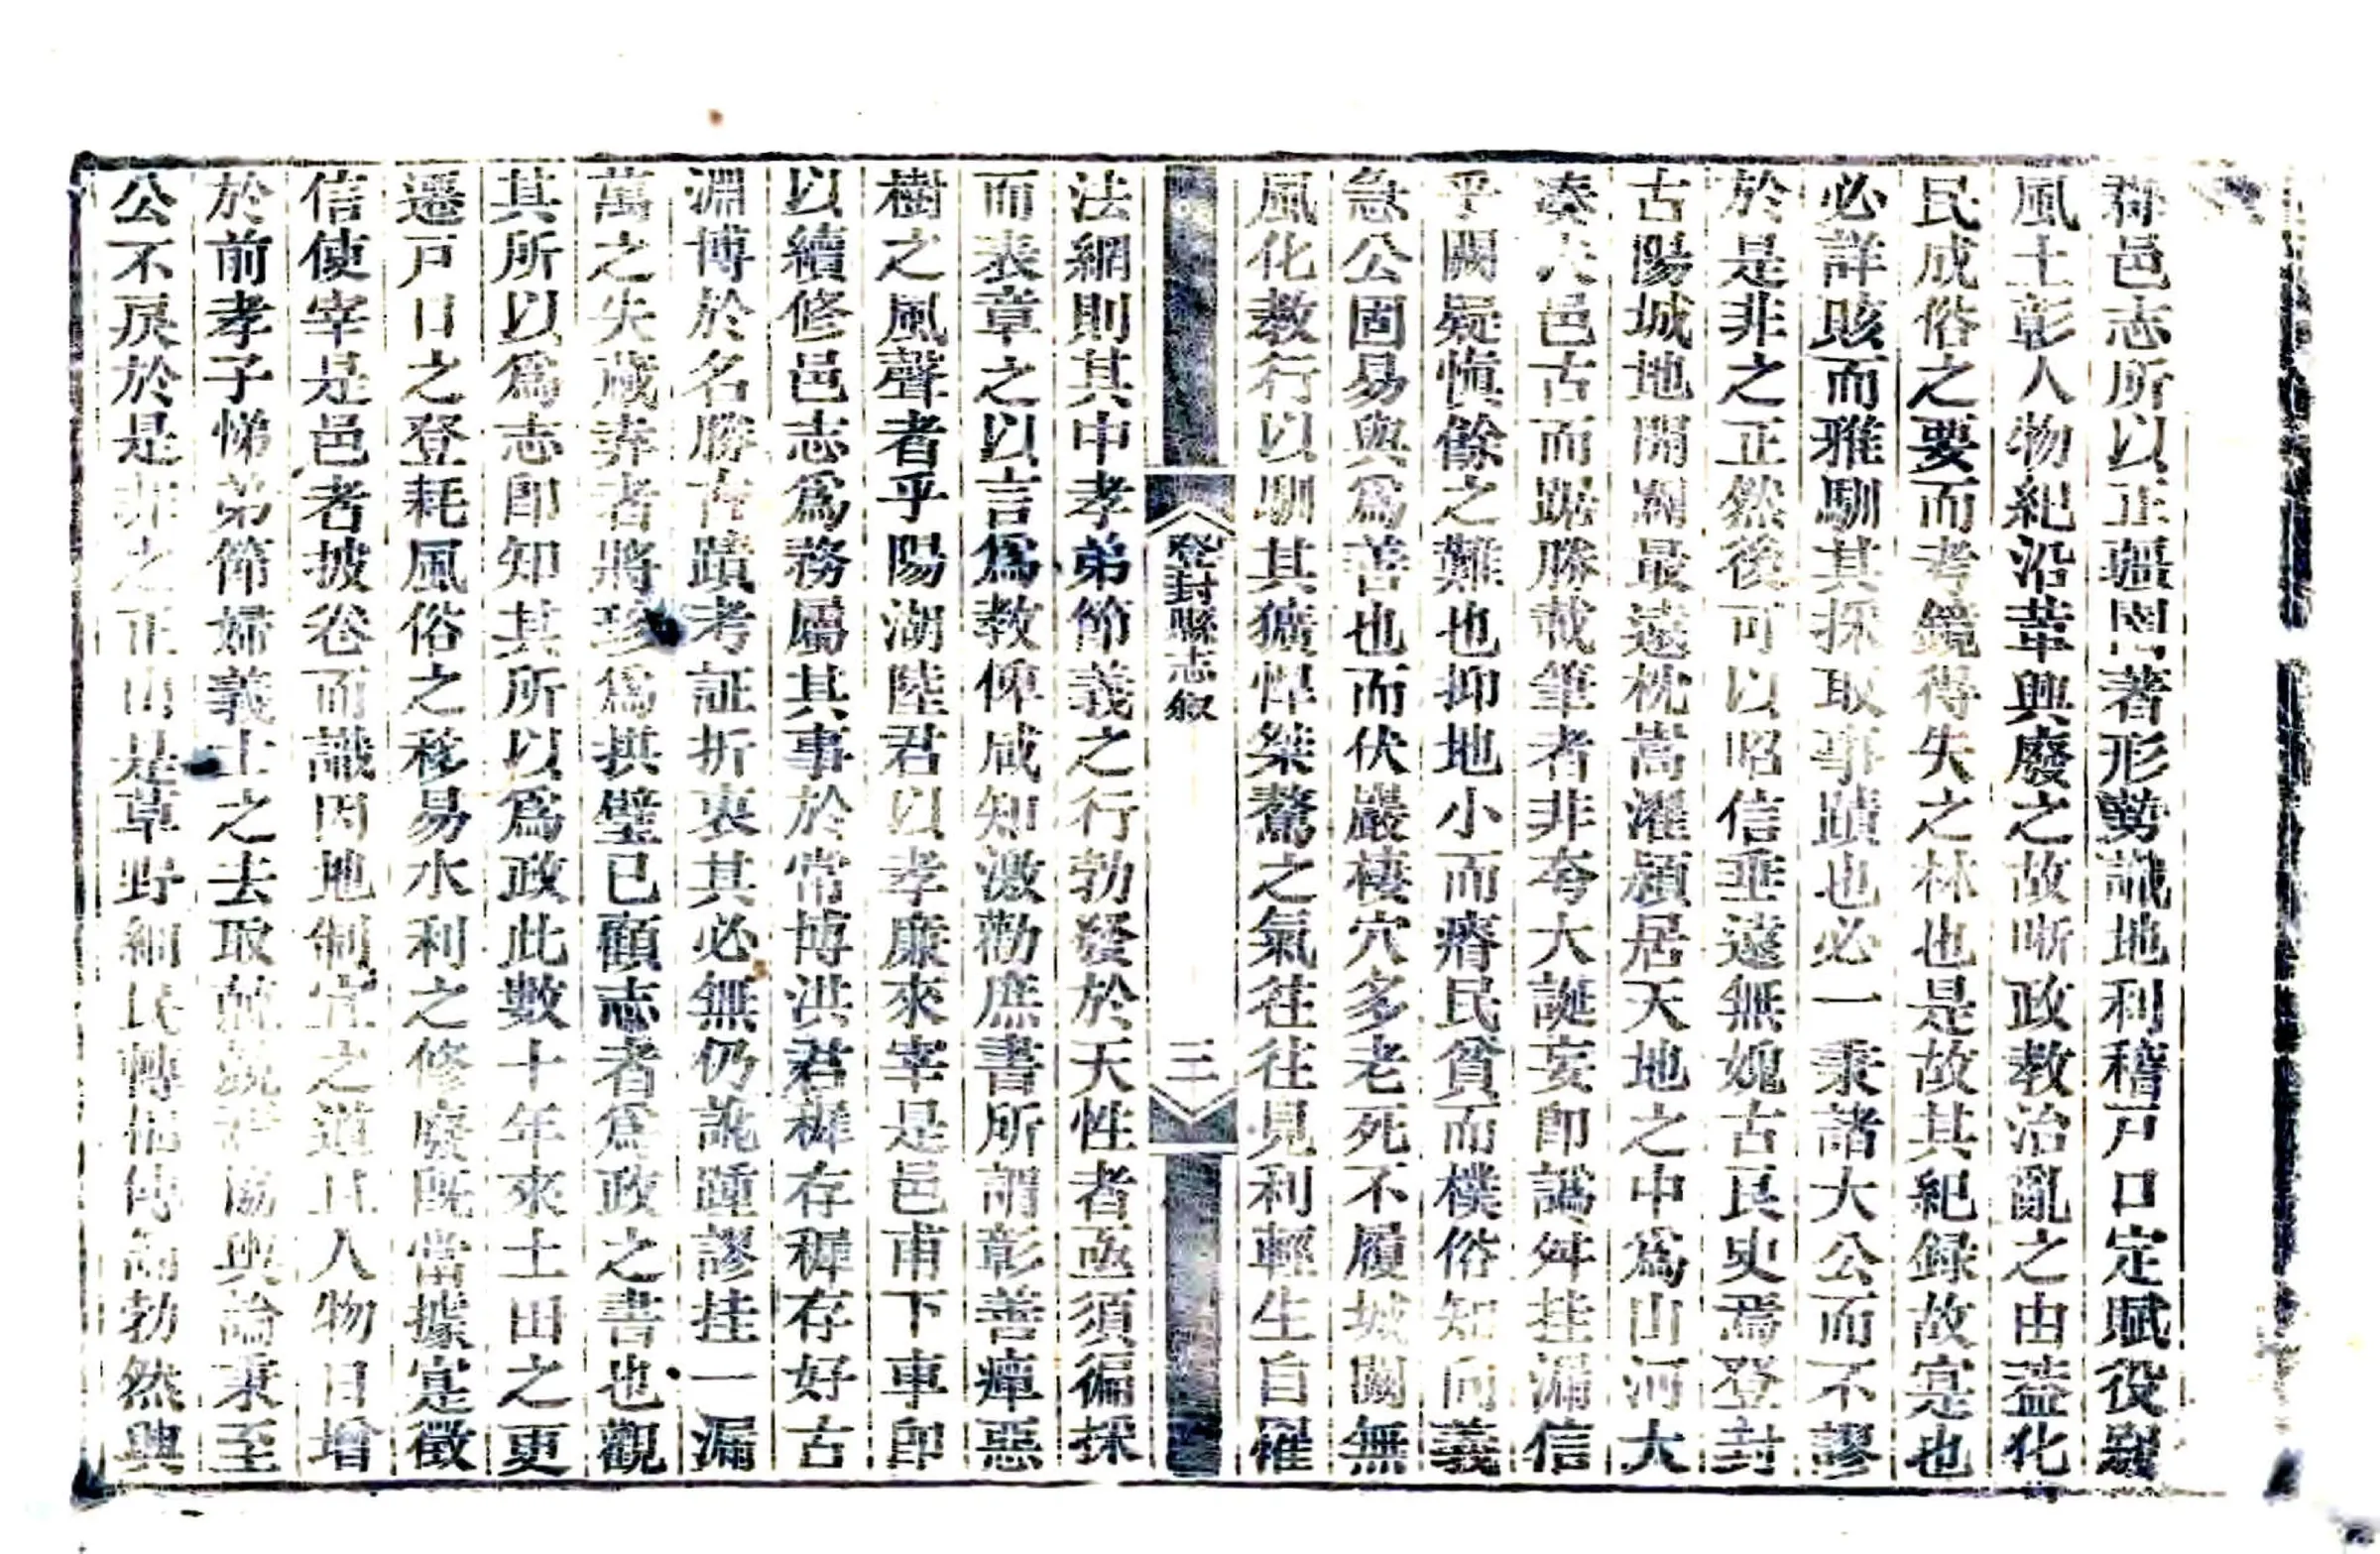 郡邑志所以正疆圉著形勢識地利稽戸口定賦役觀
風土彰人物紀沿革興廢之故晰政教治亂之由葢化
民成俗之要而考鏡得失之林也是故其紀録故寔也
必詳賅而雅馴其採取事蹟也必一秉諸大公而不謬
於是非之正然後可以昭信垂遠無媿古良史焉登封
古陽城地開闢最遠枕嵩濯潁居天地之中爲山河大
凑夫邑古而踞勝載筆者非夸大誕妄即譌舛挂漏信
乎闕疑愼餘之難也抑地小而瘠民貧而樸俗知向義
急公固易與爲善也而伏巖棲穴多老死不履城闕無
風化敎行以馴其獷悍桀驁之氣徃徃見利輕生自罹
登封縣志叙
三
法網則其中孝弟節義之行勃發於天性者亟須徧採
而表章之以言爲教俾咸知激勸庶書所謂彰善癉惡
樹之風聲者乎陽湖陸君以孝廉來宰是邑甫下車即
以續修邑志爲務屬其事於常博洪君稺存稺存好古
淵博於名勝古蹟考証折衷其必無仍訛踵謬挂一漏
萬之失蕆葳者將珍爲拱璧已顧志者爲政之書也觀
其所以爲志即知其所以爲政此數十年來土田之更
遷戸口之登耗風俗之移易水利之修廢既當據寔徵
信使宰是邑者披卷而識因地制宜之道且人物日增
於前孝子悌弟節婦義士之去取苟既詳協輿論秉至
公不戾於是非之正山是草野細民轉相傳誦勃然興